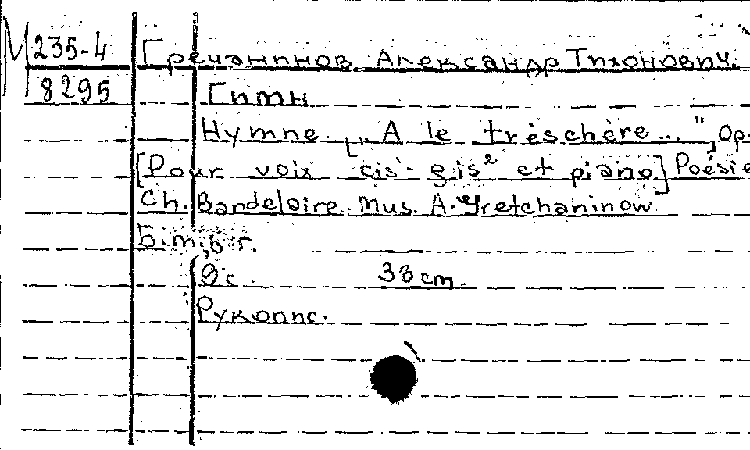 235-4 Гречанинов Александр Тихонович.
8295 Гимн
Hymne. [„ A le tréschère... ", Op.
[Pour voix cis'- gis² et piano] Poésie
Ch. Bandeloire. Mus. A. Gretchaninow.
Б.м., б.г.
9с. 38 cm.
Рукопис.